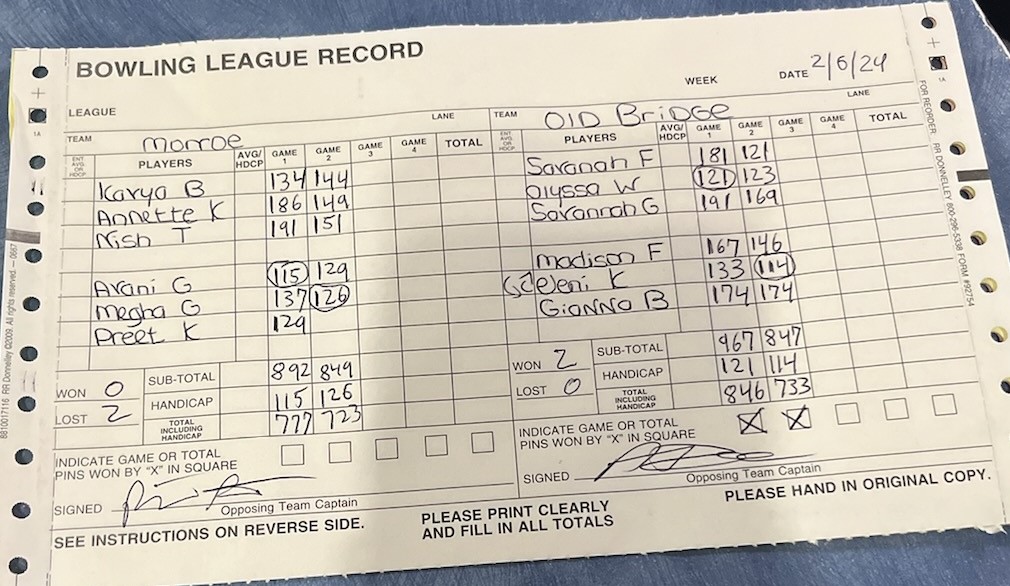 BOWLING LEAGUE RECORD
WEEK DATE 2/6/24
LEAGUE LANE
TEAM Monroe
ENT AVG OR HDCP PLAYERS AVG/HDCP GAME 1 GAME 2 GAME 3 GAME 4 TOTAL
Kavya B 134 144
Annette K 186 149
Nish T 191 151
Avani G 115 129
Megha G 137 126
Preet K 129
WON 0
LOST 2
SUB-TOTAL 892 849
HANDICAP 115 126
TOTAL INCLUDING HANDICAP 777 723
INDICATE GAME OR TOTAL
PINS WON BY "X" IN SQUARE
SIGNED
Opposing Team Captain
LANE
TEAM Old Bridge
ENT AVG OR HDCP PLAYERS AVG/HDCP GAME 1 GAME 2 GAME 3 GAME 4 TOTAL
Savanah F 181 121
Alyssa W 121 123
Savannah G 191 169
Madison F 167 146
Eleni K 133 114
Gianna B 174 174
WON 2
LOST 0
SUB-TOTAL 967 847
HANDICAP 121 114
TOTAL INCLUDING HANDICAP 846 733
INDICATE GAME OR TOTAL
PINS WON BY "X" IN SQUARE X X
SIGNED
Opposing Team Captain
SEE INSTRUCTIONS ON REVERSE SIDE.
PLEASE PRINT CLEARLY
AND FILL IN ALL TOTALS
PLEASE HAND IN ORIGINAL COPY.
8810017116 RR Donnelley ©2009. All rights reserved. — 0667
FOR REORDER: RR DONNELLEY 800-296-5338 FORM #92754